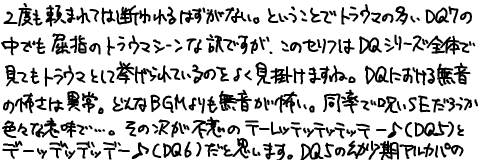 2度も頼まれては断われるはずがない。ということでトラウマの多いDQ7の
中でも屈指のトラウマシーンな訳ですが、このセリフはDQシリーズ全体で
見てもトラウマとして挙げられているのをよく見掛けますね。DQにおける無音
の怖さは異常。どんなBGMよりも無音が怖い。同率で呪いSEだろうか
色々な意味で…。その次が不思のテーレッテッテッテッテー♪(DQ5)と
デーッデッデッデー♪(DQ6)だと思います。DQ5の幼少期アルカパの